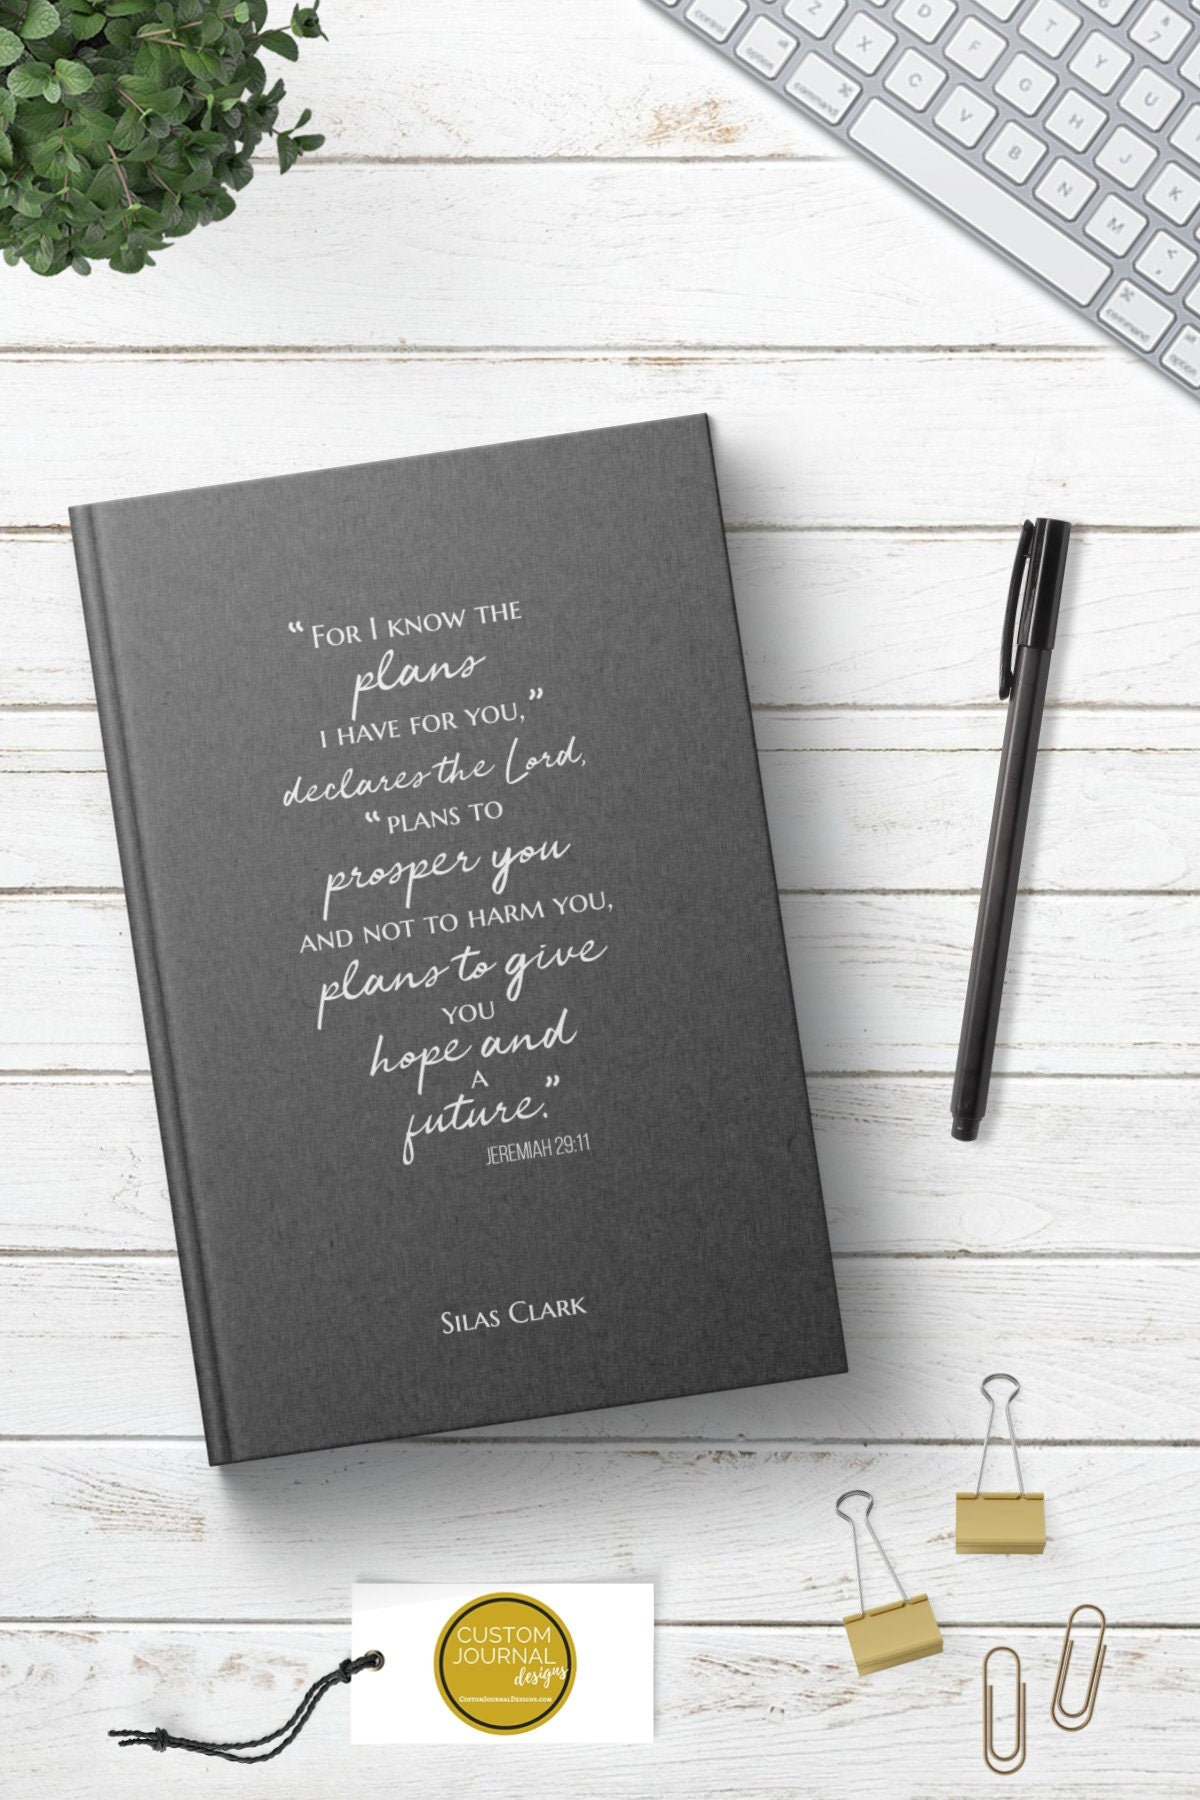 control
option
command
Z
X
C
V
B
N
M
D
F
G
H
J
K
T
Y
U
6
&
7
<
,
command
option
“For I know the
plans
I have for you,”
declares the Lord,
“plans to
prosper you
and not to harm you,
plans to give
you
hope and
a
future.”
JEREMIAH 29:11
Silas Clark
CUSTOM
JOURNAL
designs
CustomJournalDesigns.com